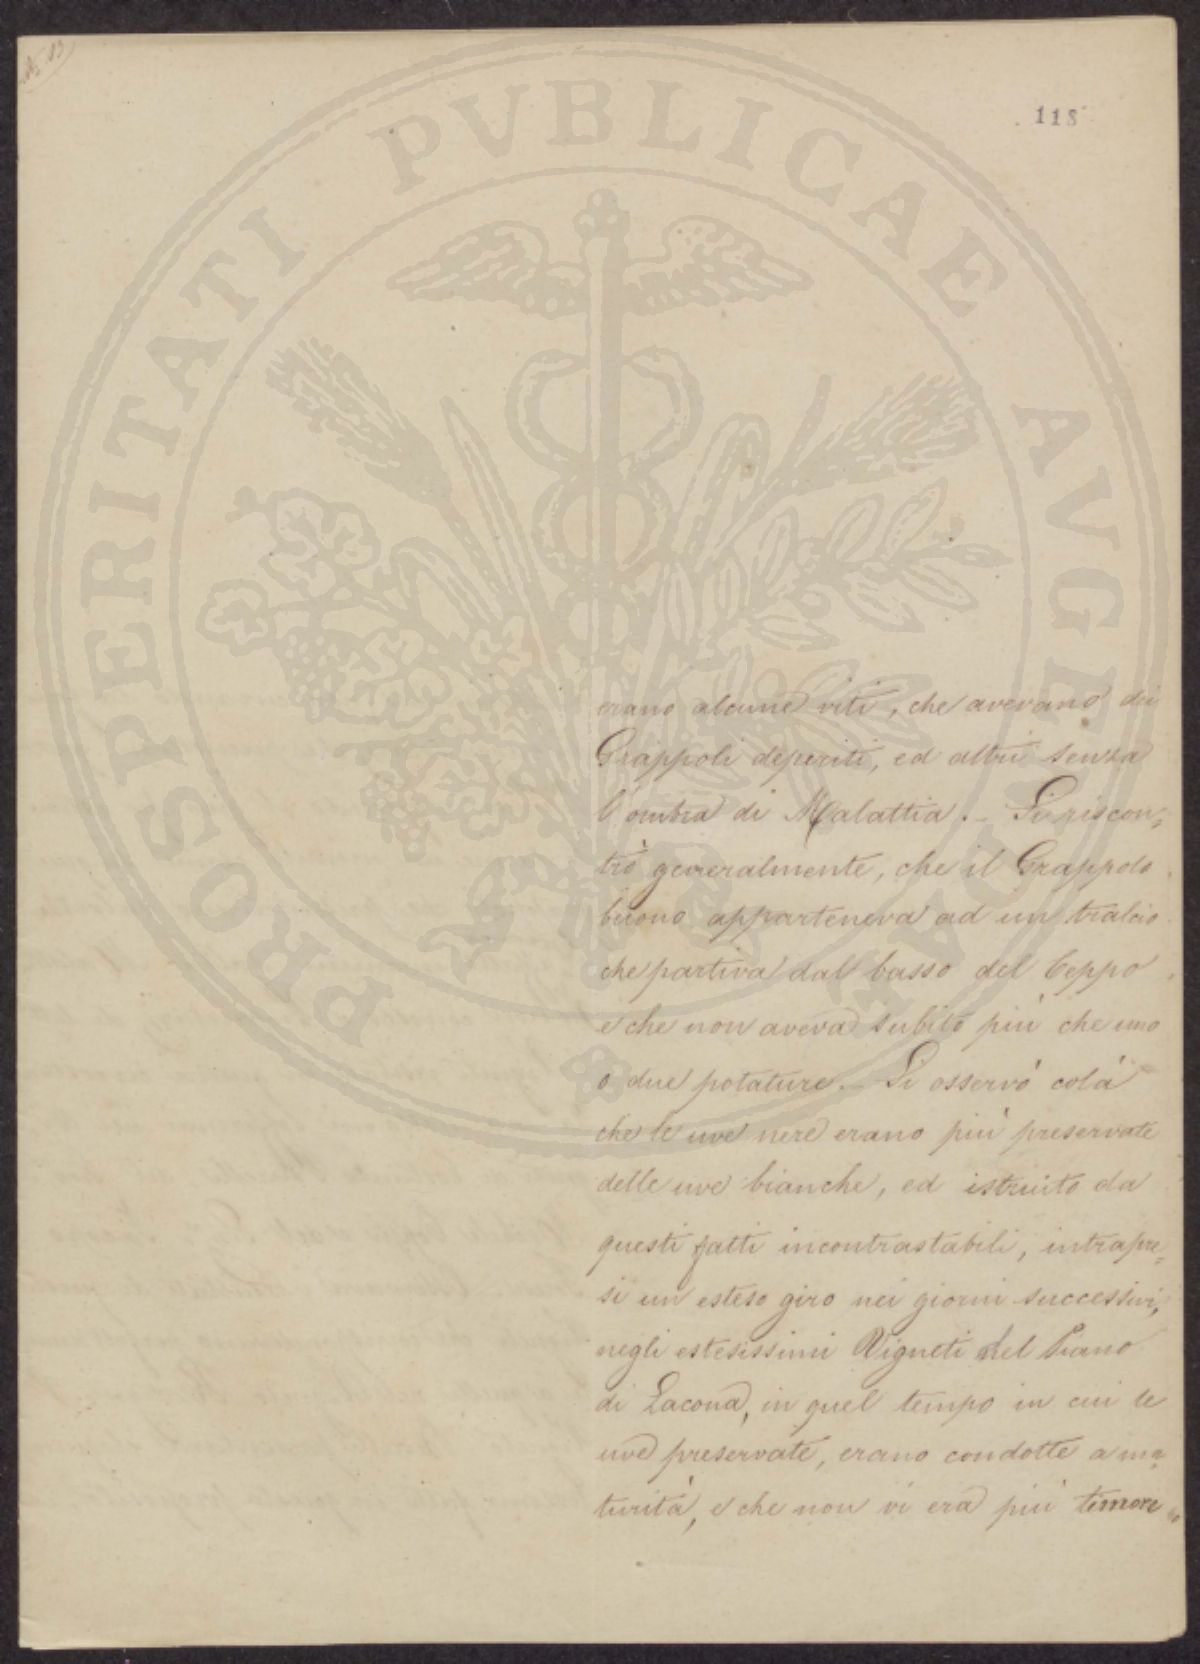 118
PROSPERITATI PVBLICAE AVGENDAE
erano alcune viti, che avevano dei
Grappoli deperiti, ed altri senza
l'ombra di Malattia. - Si riscon=
trò generalmente, che il Grappolo
buono apparteneva ad un tralcio
che partiva dal basso del Ceppo
e che non aveva subito più che uno
o due potature. - Si osservò colà
che le uve nere erano più preservate
delle uve bianche, ed istruito da
questi fatti incontrastabili, intrapre=
si un esteso giro nei giorni successivi,
negli estesissimi Vigneti del Piano
di Lacona, in quel tempo in cui le
uve preservate, erano condotte a ma=
turità, e che non vi era più timore